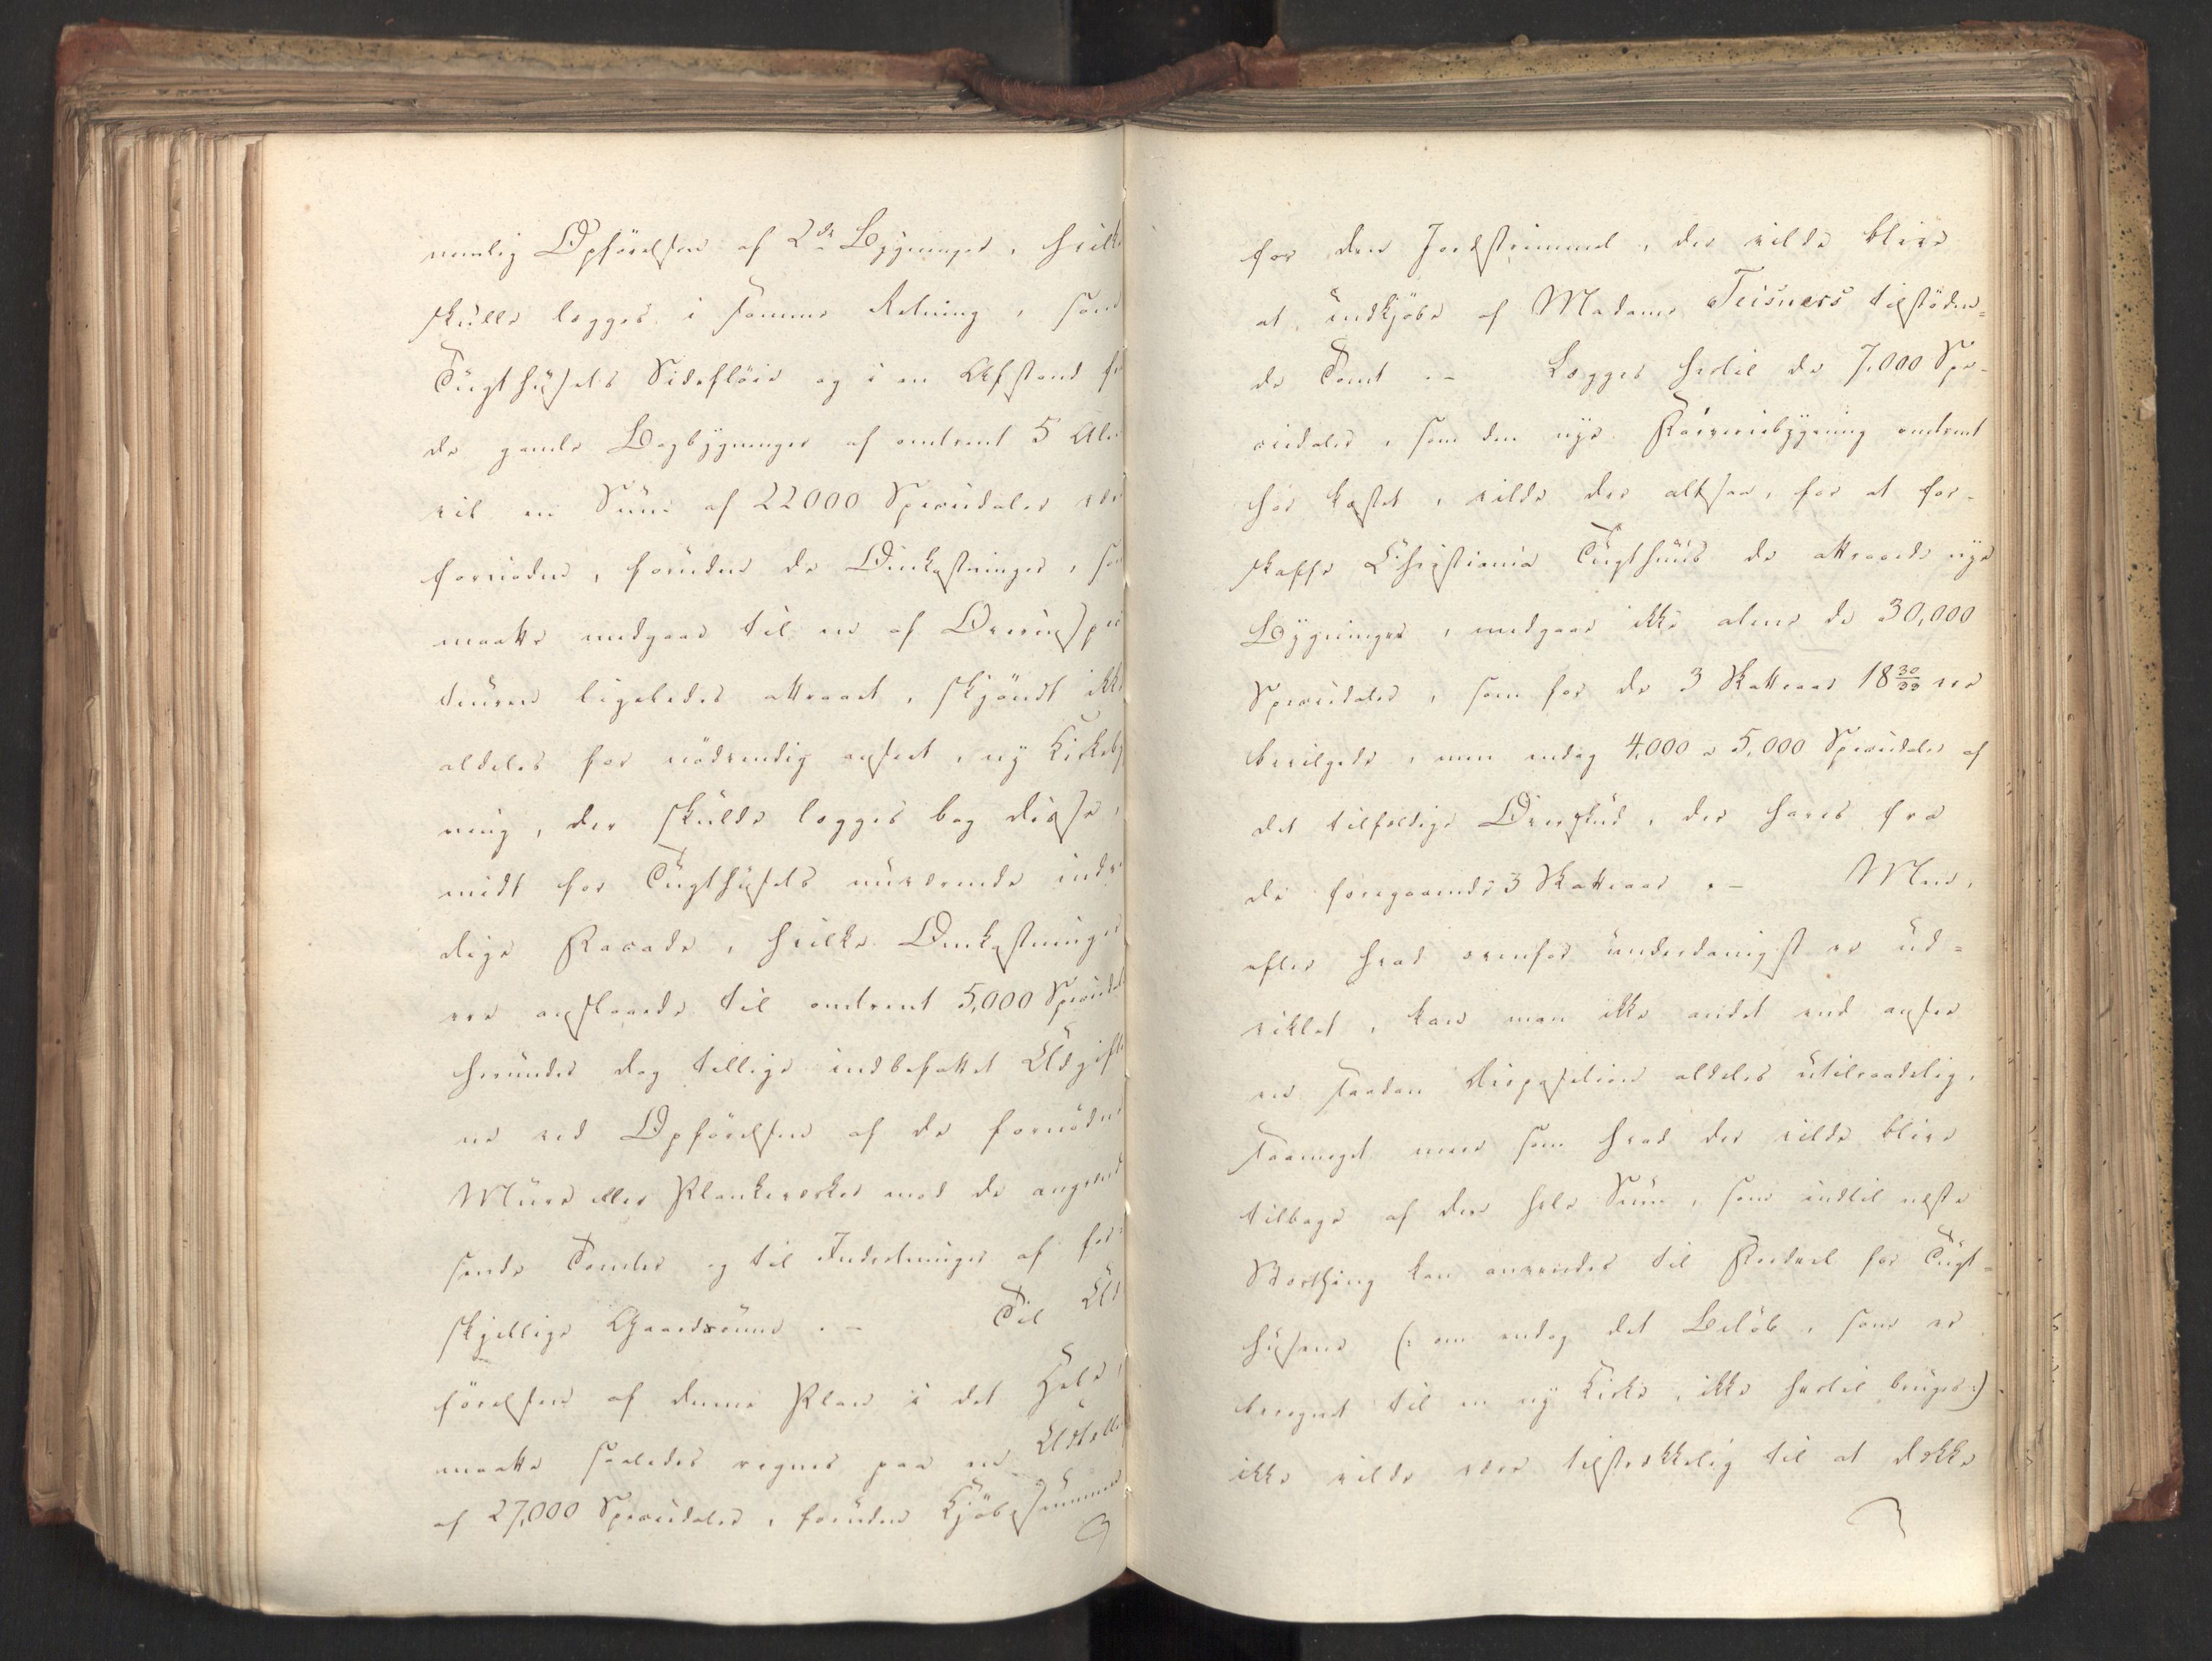 nemlig Opförelsen af 2de Bygninger, hvilke
skulle lægges i samme Retning, som
Tugthusets Sideflöie og i en Afstand fra
de gamle Bagbygninger af omtrent 5 Alen
vil en Sum af 22000 Speciedaler være
fornöden, foruden de Omkostninger, som
maatte medgaae til en af Overinspec
teuren ligeledes attraaet, skjöndt ikke
aldeles for nödvendig anseet, ny Kirkebyg
ning, der skulde lægges bag disse,
midt for Tugthusets nuværende indven
dige Facade, hvilke Omkostninger
ere anslaaede til omtrent 5,000 Speciedaler
herunder dog tillige indbefattet Udgifter
ne ved Opförelsen af de fornödne
Mure eller Plankeværker mod de angrænd
sende Tomter og til Indretninger af for
skjellige Gaardsrum. – Til Ud
förelsen af denne Plan i det Hele,
maatte saaledes regnes paa en Udtælling
af 27,000 Speciedaler, foruden Kjöbesummen
for den Jordstrimmel, der vilde blive
at indkjöbe af Madame Teisners tilstöden=
de Tomt. – Lægges hertil de 7,000 Spe-
ciedaler, som den nye Farveriebygning omtrent
har kostet, vilde der altsaa, for at for-
skaffe Christiania Tugthuus de attraaede nye
Bygninger, medgaae ikke alene de 30,000
Speciedaler, som for de 3 Skatteaar 18 30/33 ere
bevilgede, men endog 4,000 a 5,000 Speciedaler af
det tilfældige Overskud, der haves fra
de foregaaende 3 Skatteaar. – Men,
efter hvad ovenfor underdanigst er ud=
viklet, kan man ikke andet end ansee
en saadan Disposition aldeles utilraadelig,
saameget mere som hvad der vilde blive
tilbage af den hele Sum, som indtil næste
Storthing kan anvendes til Fordeel for Tugt=
husene (: om endog det Belöb, som er
beregnet til en ny Kirke, ikke hertil bruges:)
ikke vilde være tilstrækkelig til at dække